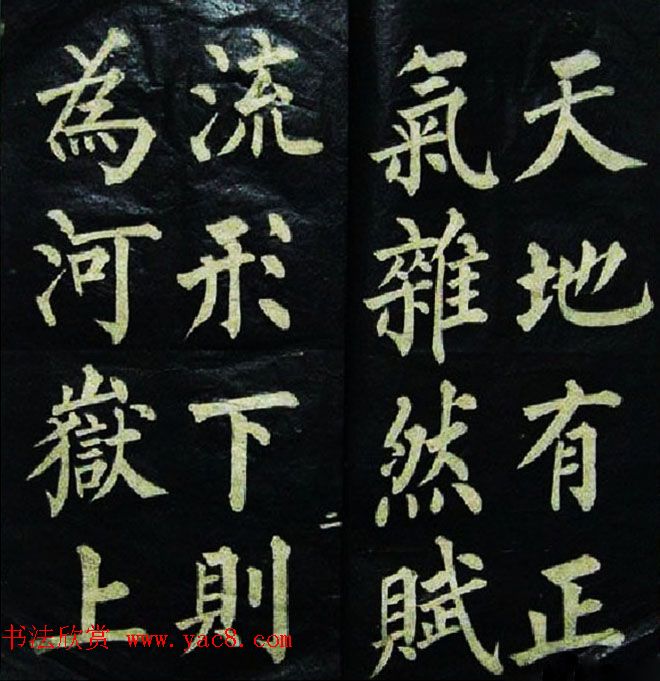 天地有正
氣雜然賦
二
流形下則
為河嶽上
书法欣赏 www.yac8.com